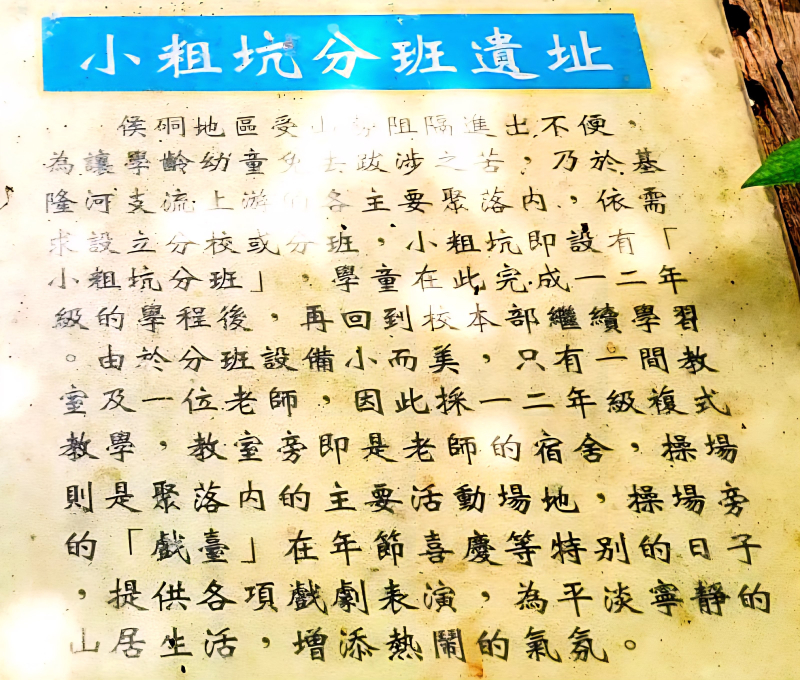 小粗坑分班遺址
侯硐地區受山勢阻隔進出不便，
為讓學齡幼童免去跋涉之苦，乃於基
隆河支流上游的各主要聚落內，依需
求設立分校或分班，小粗坑即設有「
小粗坑分班」，學童在此完成一二年
級的學程後，再回到校本部繼續學習
。由於分班設備小而美，只有一間教
室及一位老師，因此採一二年級複式
教學，教室旁即是老師的宿舍，操場
則是聚落內的主要活動場地，操場旁
的「戲臺」在年節喜慶等特別的日子
，提供各項戲劇表演，為平淡寧靜的
山居生活，增添熱鬧的氣氛。